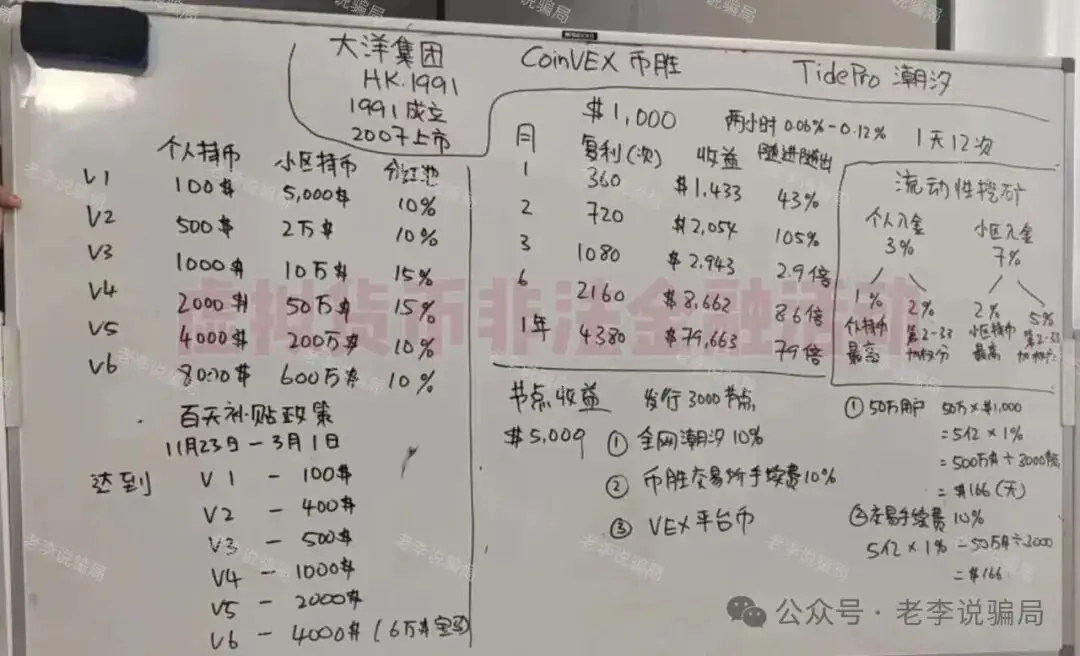 大洋集团
HK.1991
1991成立
2007上市
CoinVEX 币胜
TidePro 潮汐
个人持币 小区持币 分红池
V1 100$ 5,000$ 10%
V2 500$ 2万$ 10%
V3 1000$ 10万$ 15%
V4 2000$ 50万$ 15%
V5 4000$ 200万$ 10%
V6 8000$ 600万$ 10%
百天补贴政策
11月23日－3月1日
达到 V1 - 100$
V2 - 400$
V3 - 500$
V4 - 1000$
V5 - 2000$
V6 - 4000$ (6万$宝马)
$1,000 两小时 0.06%-0.12% 1天12次
月 复利(次) 收益 随进随出
1 360 $1,433 43%
2 720 $2,054 105%
3 1080 $2,943 2.9倍
6 2160 $8,662 8.6倍
1年 4380 $79,663 79倍
流动性挖矿
个人入金 小区入金
3% 7%
1% 2% 2% 5%
个人持币 第2-33 小区持币 第2-33
最高 加权分 最高 加权
节点收益 发行3000节点
$5,009 ① 全网潮汐10%
② 币胜交易所手续费10%
③ VEX平台币
① 50万用户 50万×$1,000
=5亿×1%
=500万$÷3000
=$166(天)
②交易手续费10%
5亿×1‰ -50万$÷3000
=$166
虚拟货币非法金融活动
老李说骗局
公众号·老李说骗局